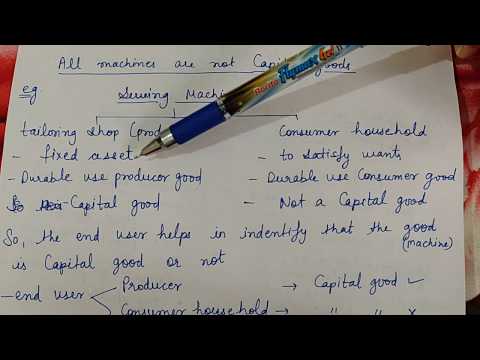 All machines are not Capital goods
eg. Sewing Machi
tailoring shop (prod Consumer household
- fixed asset - to satisfy want
- Durable use producer good - Durable use Consumer good
Capital good - Not a Capital good
So, the end user helps in indentify that the good
(machine)
is Capital good or not
- end user Producer → Capital good ✓
Consumer household → " " x
Rorito